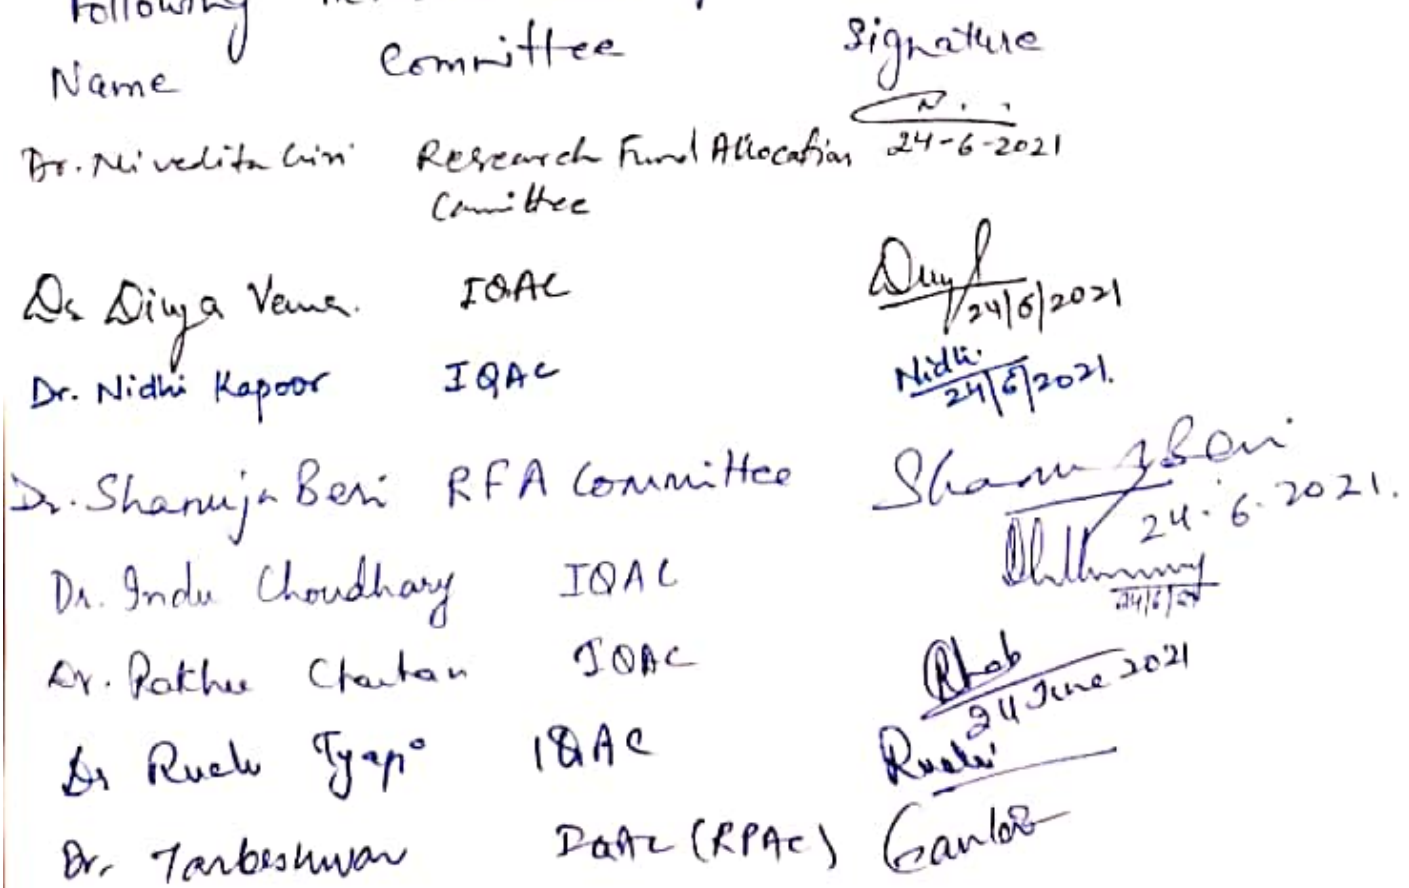 Following
Name Committee Signature
Dr. Nivedita Giri Research Fund Allocation 24-6-2021
Committee
Dr Divya Verma. IQAC 24/6/2021
Dr. Nidhi Kapoor IQAC Nidhi. 24/6/2021.
Dr. Shanuja Beri RFA Committee Shanuja Beri 24.6.2021.
Dr. Indu Choudhary IQAC 24/6/21
Dr. Rakhee Chauhan IQAC 24 June 2021
Dr Ruchi Tyagi IQAC Ruchi
Dr. Tarkeshwar IQAC (RPAC)